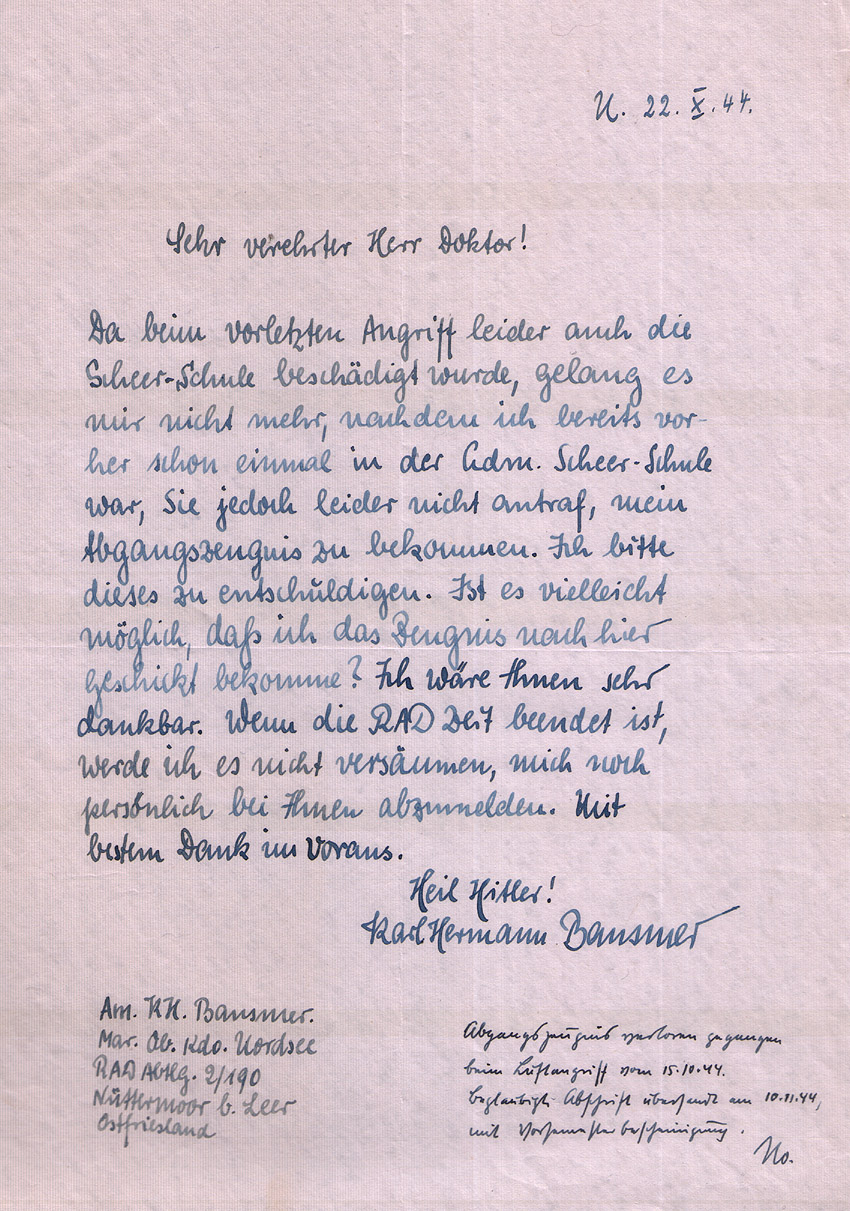 N. 22. X. 44.
Sehr verehrter Herr Doktor!
Da beim vorletzten Angriff leider auch die
Scheer-Schule beschädigt wurde, gelang es
mir nicht mehr, nachdem ich bereits vor-
her schon einmal in der Adm. Scheer-Schule
war, Sie jedoch leider nicht antraf, mein
Abgangszeugnis zu bekommen. Ich bitte
dieses zu entschuldigen. Ist es vielleicht
möglich, daß ich das Zeugnis nach hier
geschickt bekomme? Ich wäre Ihnen sehr
dankbar. Wenn die RAD Zeit beendet ist,
werde ich es nicht versäumen, mich noch
persönlich bei Ihnen abzumelden. Mit
bestem Dank im Voraus.
Heil Hitler!
Karl Hermann Bansmer
Am. KH. Bansmer.
Mar. Ob. Kdo. Nordsee
RAD Abtlg. 2/190
Nüttermoor b. Leer
Ostfriesland
Abgangszeugnis verloren gegangen
beim Luftangriff vom 15.10.44.
Beglaubigte Abschrift übersandt am 10.11.44,
mit Vorsemesterbescheinigung.
No.